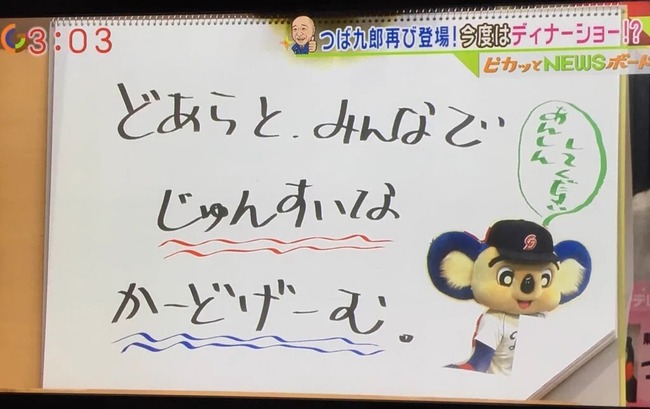 3:03
つば九郎再び登場!今度はディナーショー!?
ピカッとNEWSボード
どあらと、みんなで
じゅんすいな
かーどげーむ。
あんしん
してください